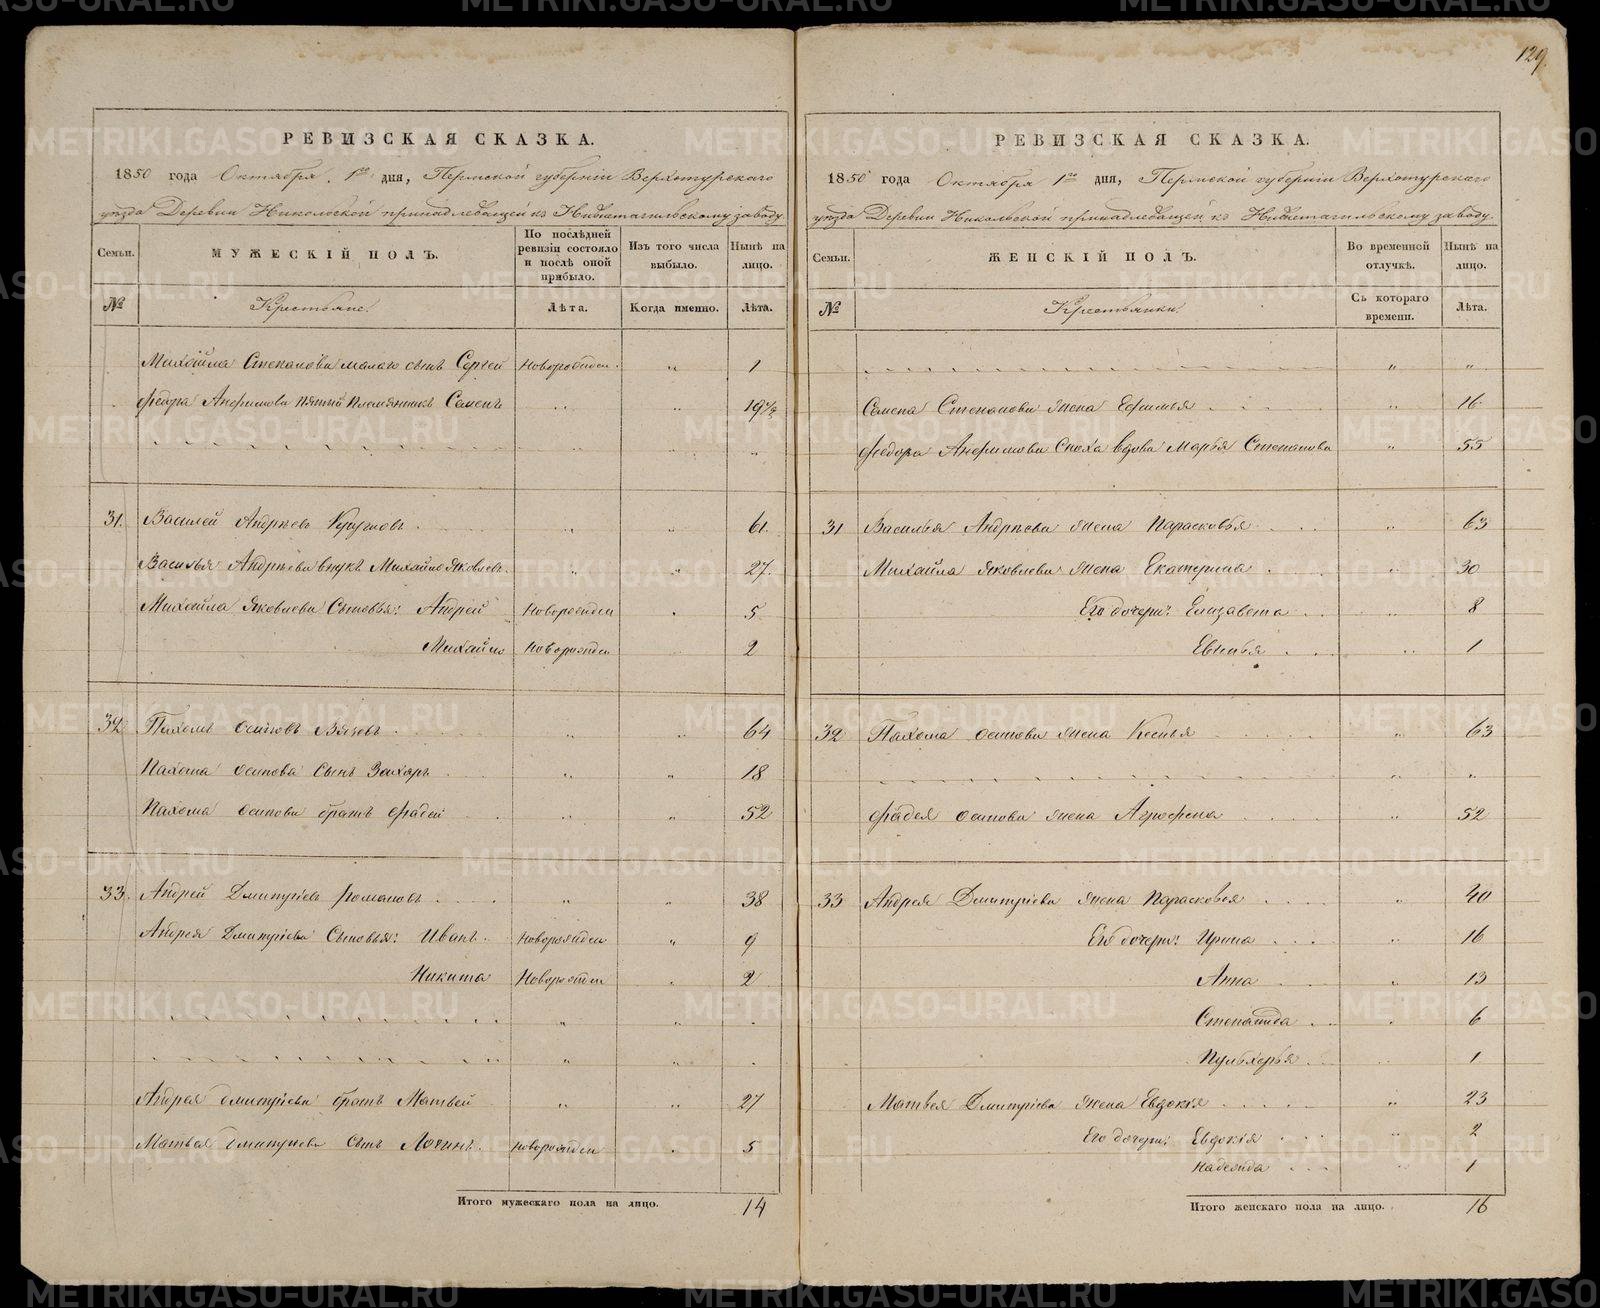 129.
РЕВИЗСКАЯ СКАЗКА.
1850 года Октября 1го дня, Пермской губерніи Верхотурскаго
уѣзда Деревни Никольской принадлежащей къ Нижнетагильскому заводу.
Семьи.
МУЖЕСКІЙ ПОЛЪ.
По послѣдней ревизіи состояло и послѣ оной прибыло.
Изъ того числа выбыло.
Нынѣ на лицо.
№
Крестьяне.
Лѣта.
Когда именно.
Лѣта.
Михайла Степанова малаго сынъ Сергей Новорожден. " 1
Федора Анфимова пятый племянникъ Семенъ " " 19 1/2
31. Василей Андрѣевъ " " 61.
Василья Андрѣева внукъ Михайло Яковлевъ. " " 27.
Михайла Яковлева Сыновья: Андрей Новорожден 5
Михайло Новорожден 2
32 Пахомъ Осиповъ " " 64
Пахома Осипова Сынъ Захаръ " " 18
Пахома Осипова братъ Фадей " " 52
33. Андрей Дмитріевъ Романовъ " " 38
Андрея Дмитріева Сыновья: Иванъ. Новорожден " 9
Никита Новорожден 2
Андрея Дмитріева братъ Матвей " " 27
Матвея Дмитріева сынъ Логинъ. Новорожден 5
Итого мужескаго пола на лицо. 14
РЕВИЗСКАЯ СКАЗКА.
1850 года Октября 1го дня, Пермской губерніи Верхотурскаго
уѣзда Деревни Никольской принадлежащей къ Нижнетагильскому заводу.
Семьи.
ЖЕНСКІЙ ПОЛЪ.
Во временной отлучкѣ.
Нынѣ на лицо.
№
Крестьянки.
Съ котораго времени.
Лѣта.
" "
Семена Степанова жена Ефимья " 16
Федора Анфимова Сноха вдова Марья Степанова " 55
31 Василья Андрѣева жена Парасковья " 63
Михайла Яковлева жена Екатерина " 30
Его дочери: Елизавета " 8
1
32 Пахома Осипова жена Ксенья " 63
" "
Фадея Осипова жена Агрофена " 52
33 Андрея Дмитріева жена Парасковья " 40
Его дочери: Ирина " 16
Анна " 13
Степанида " 6
Пульхерья 1
Матвея Дмитріева жена Евдокія " 23
Его дочери: Евдокія " 2
Надежда " 1
Итого женскаго пола на лицо. 16
METRIKI.GASO-URAL.RU